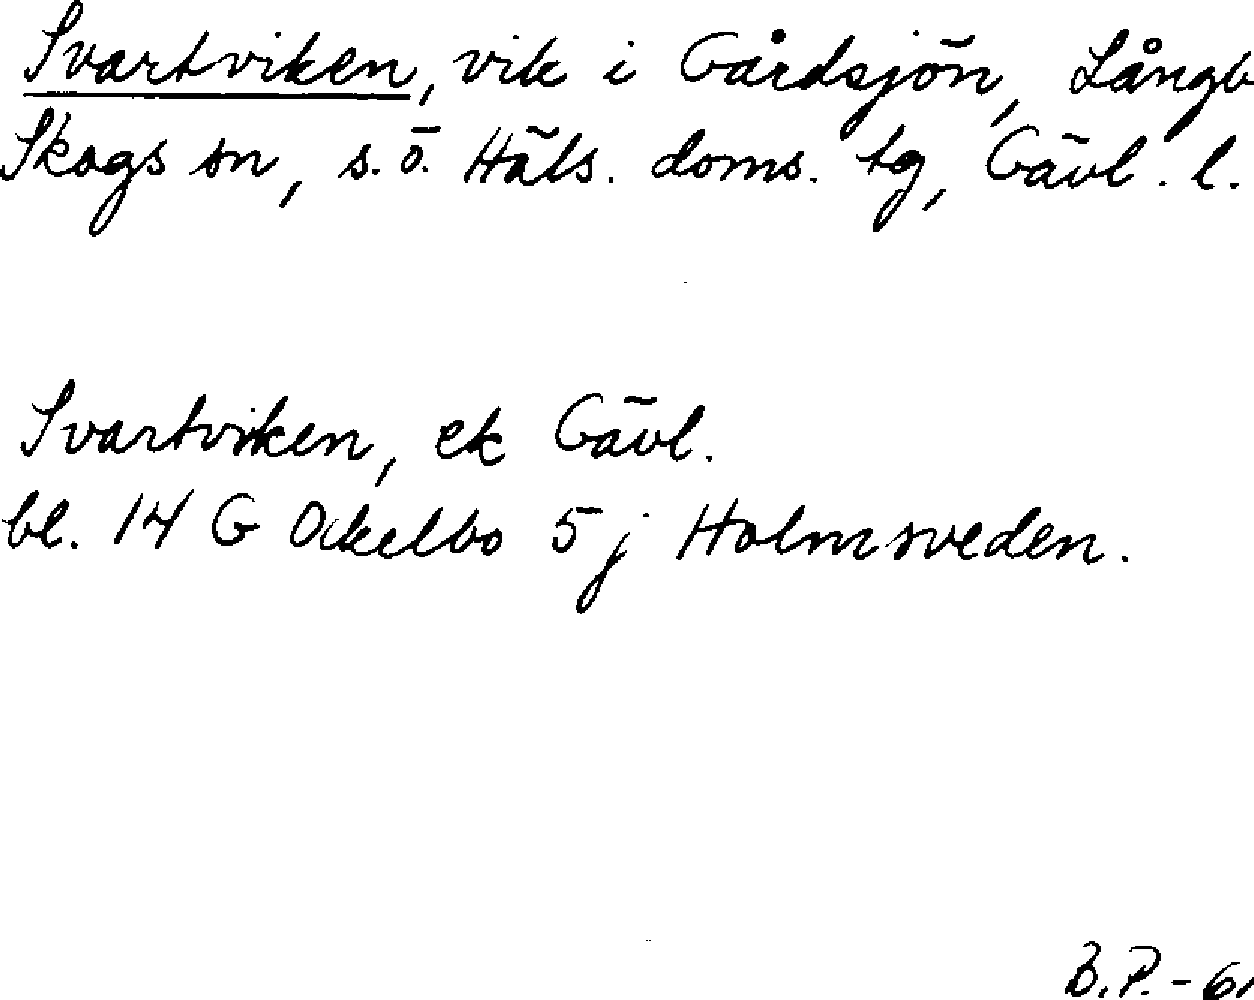 Svartviken, vik i Gårdsjön, Långb
Skogs sn, s.ö. Häls. doms. tg, Gävl. l.
Svartviken, ek Gävl.
bl. 14 G Ockelbo 5 j Holmsveden.
B.P. - 61